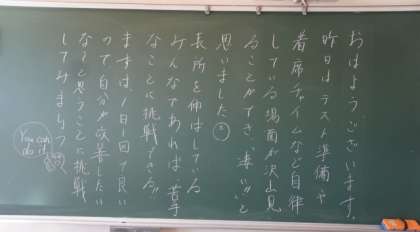 おはようございます。
昨日は、テスト準備や
着席、チャイムなど自律
している場面が沢山見
ることができ、凄い!!と
思いました
長所を伸ばしている
みんなであれば、苦手
なことに挑戦できる!!
まずは、1日1回で良い
ので自分が改善したい
なと思うことに挑戦
してみましょう
You can
do it